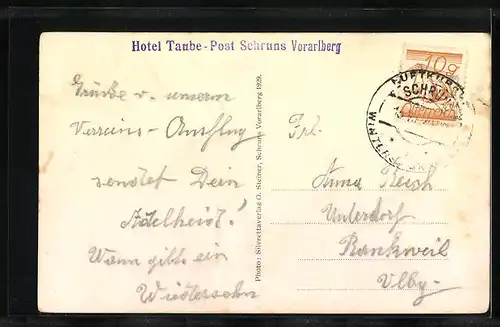 Hotel Taube-Post Schruns Vorarlberg
10g
LUFTKURORT
SCHRUNS
WINTERSP
Grüsse v. unserm
Vereins-Ausflug
sendet Dein
Adelheid!
Wann gibts ein
Wiedersehn
Photo: Silvrettaverlag O. Steiner, Schruns Vorarlberg 1929.
Frl.
Anna Reich
Unterdorf
Rankweil
Vlbg.